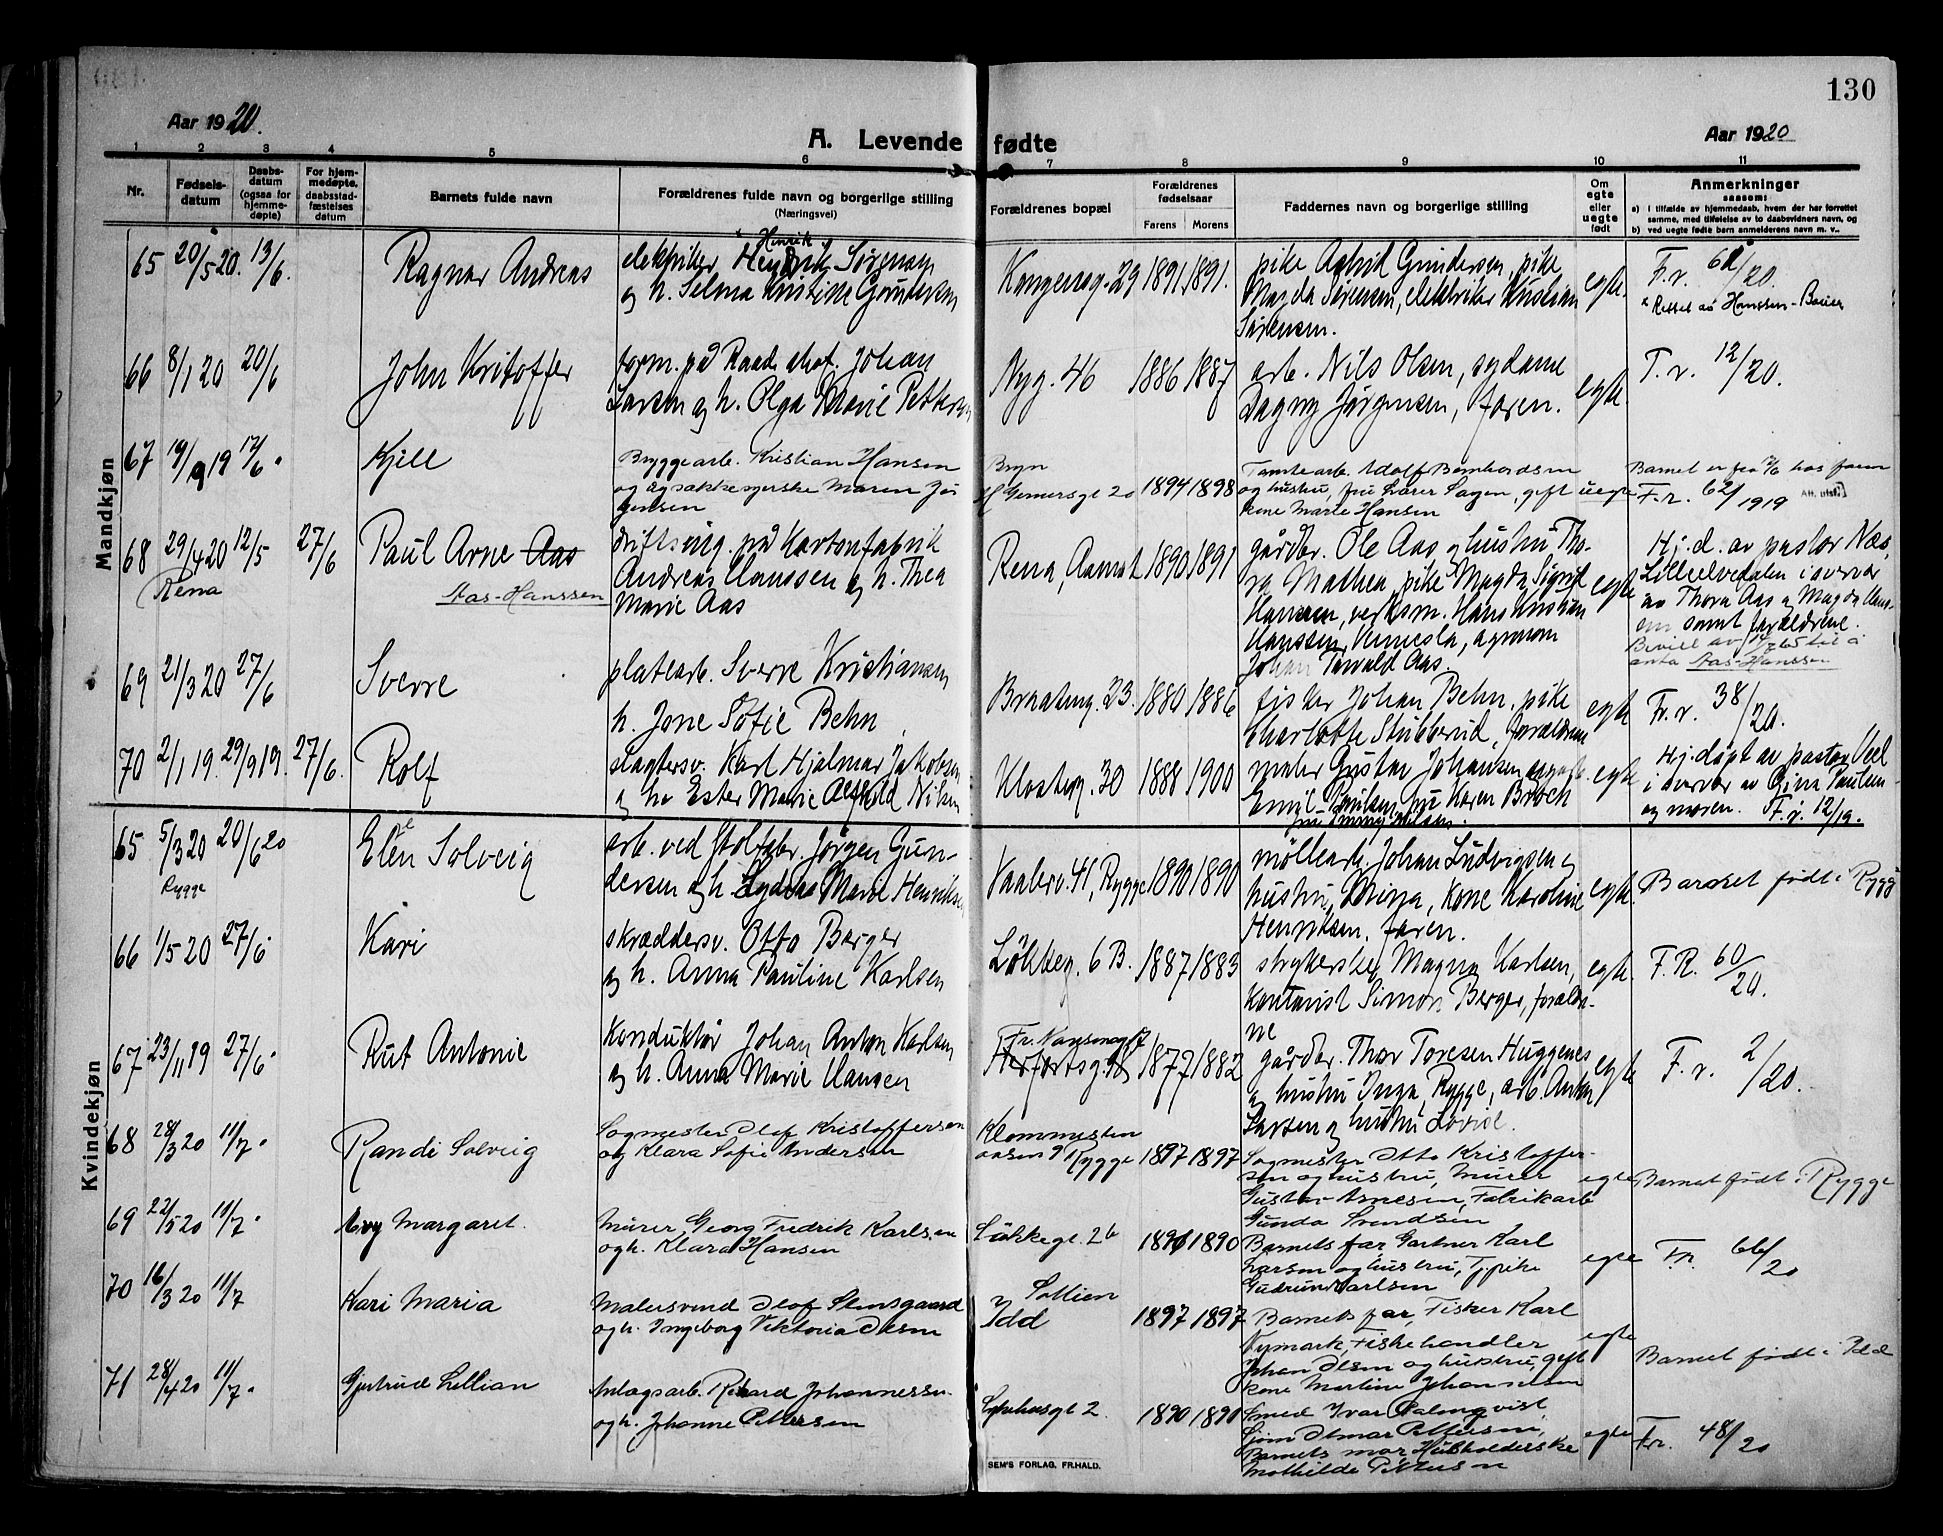 130
Aar 1920.
A. Levende fødte
Aar 1920
1 2 3 4 5 6 7 8 9 10 11
Nr.
Fødsels-
datum
Daabs-
datum
(ogsaa for
hjemme-
døpte)
For hjem-
medøpte,
daabsstad-
fæstelses
datum
Barnets fulde navn
Forældrenes fulde navn og borgerlige stilling
(Næringsvei)
Forældrenes bopæl
Forældrenes
fødselsaar
Farens Morens
Faddernes navn og borgerlige stilling
Om
egte
eller
uegte
født
Anmerkninger
saasom:
a) i tilfælde av hjemmedaab, hvem der har forrettet
samme, med tilføielse av to daabsvidners navn, og
b) ved uegte fødte børn anmelderens navn m. v..
Mandkjøn
65 20/5 20. 13/6. Ragnar Andreas
Henrik
elektriker Sørensen
og h. Selma Kristine Gundersen
Kongensg. 29 1891 1891.
pike Astrid Gundersen, pike
Magda Sørensen, elektriker Kristian
Sørensen.
egte.
F.r. /20.
x Rettet av Hanssen-Bauer
66 8/1 20 20/6 John Kristoffer
form. på Raads chof. Johan
Larsen og h. Olga Marie Pettersen
Nyg. 46 1886 1887
arb. Nils Olsen, sydame
Dagny Jørgensen, faren.
egte.
F. r. 12/20.
67 19/9 19 17/6. Kjell
Bryggearb. Kristian Hansen
og sækkesyerske Maren Jør
gensen
Bryn
H Gernersgt 20 1894 1898
Tomtearb. Adolf Bernhardsen
og hustru, fru Sværer Sagen, gift
kone Marte Hansen
uegte
Barnet er fra 7/6 hos faren
F.r. 62/1919
Att. utst.
68 29/4 20 12/5 27/6 Paul Arne Aas
Rena
Aas-Hanssen
driftsing. på Kartonfabrik
Andreas Hanssen og h. Thea
Marie Aas
Rena, Aamot 1890 1891
gårdbr. Ole Aas og hustru Tho-
ra Mathea, pike Magda Sigrid
Hanssen, verksm. Hans Kristian
Hanssen, Vennesla, agronom
Johan Tarvald Aas.
egte
Hj. d. av pastor Næs,
Lilleelvedalen i overvær
av Thora Aas og Magda Hans-
sen samt forældrene.
Bevill. av 14/7 65 til å
anta Aas-Hanssen
69 21/3 20 27/6 Sverre
platearb. Sverre Kristiansen
h. Jone Sofie Behn
Braateng. 23. 1880 1886
fisker Johan Behn, pike
Charlotte Stubberud, forældrene
egte
Fr. r. 38/20.
70 2/1 19. 29/9 19. 27/6. Rolf
slagtersv. Karl Hjalmar Jakobsen
og h. Ester Marie Alfhild Nilsen
Klosterg. 30 1888 1900
maler Gustav Johansen,
Emil Paulsen, fru Karen Broch
egte
Hj. døpt av pastor Veel
i overvær av Gina Paulsen
og moren. F.r. 12/19.
Kvindekjøn
65 5/3 20 20/6 20 Elen Solveig
Rygge
arb. ved Stoltebr. Jørgen Gun-
dersen og h. Lydia Marie Henriksen
Vaalerv. 41, Rygge 1890 1890
møllearb. Johan Ludvigsen og
hustru, Minna, kone Karoline
Henriksen, faren.
egte.
Barnet født i Rygge
66 1/5 20 27/6 Kari
skræddersv. Otto Berger
og h. Anna Pauline Karlsen
Løkkeg. 6 B. 1887 1883
strykerske Magna Karlsen,
kontorist Simon Berger, foræld-
ne
egte
F.R. 60/20.
67 23/11 19 27/6. Rut Antonie
Konduktør Johan Anton Karlsen
og h. Anna Marie Hansen
Fr. Nansensg. 17
1877 1882
gårdbr. Thor Toresen Huggenes
og hustru Inga, Rygge, arb. Anton
Larsen og hustru Lovise.
egte
F. r. 2/20.
68 28/3 20 11/7. Randi Solveig
Sagmester Olaf Kristoffersen
og Klara Sofie Andersen
Klommesten
aasen 9 Rygge 1897 1897
Sagmester Otto Kristoffer-
sen og hustru, Murer
Gustav Arnesen, Fabrikarb
Gunda Svendsen
egte
Barnet født i Rygge
69 22/5 20 11/7. Margaret.
Murer Georg Fredrik Karlsen
og h. Klara Hansen
Løkkegt. 2b 1890
Barnets far, Gartner Karl
Larsen og hustru, Tj.pike
Gudrun Karlsen
egte
F.r. 66/20
70 16/3 20 11/7 Kari Maria
Malersvend Olaf Stensgaard
og h. Ingeborg Viktoria Olsen
Sollien
Idd 1897 1897
Barnets far, Fisker Karl
Nymark, Fiskehandler
Johan Olsen og hustru, gift
kone Martine Johannesen
egte
Barnet født i Idd
71 28/4 20 11/7. Gjertrud Lillian
Anlægsarb. Rikard Johannessen
og h. Johanne Pettersen
2. 1890 1890
Smed Ivar Palmqvist,
Sjøm Otmar Pettersen,
Barnets mor, Husholderske
Mathilde Pettersen
egte
Fr. 48/20
SEM'S FORLAG, FR.HALD.